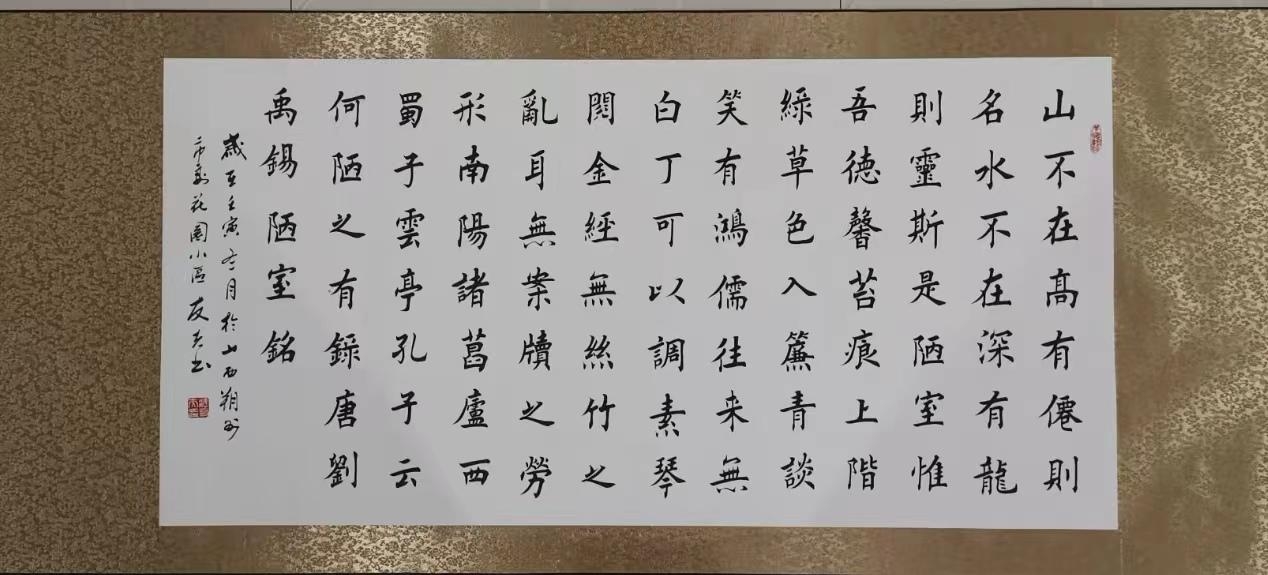 山不在高有僊則
名水不在深有龍
則靈斯是陋室惟
吾德馨苔痕上階
綠草色入簾青談
笑有鴻儒往来無
白丁可以調素琴
閱金經無絲竹之
亂耳無案牘之勞
形南陽諸葛廬西
蜀子雲亭孔子云
何陋之有錄唐劉
禹錫陋室銘
歲在壬寅冬月於山西朔州
市花園小區友书